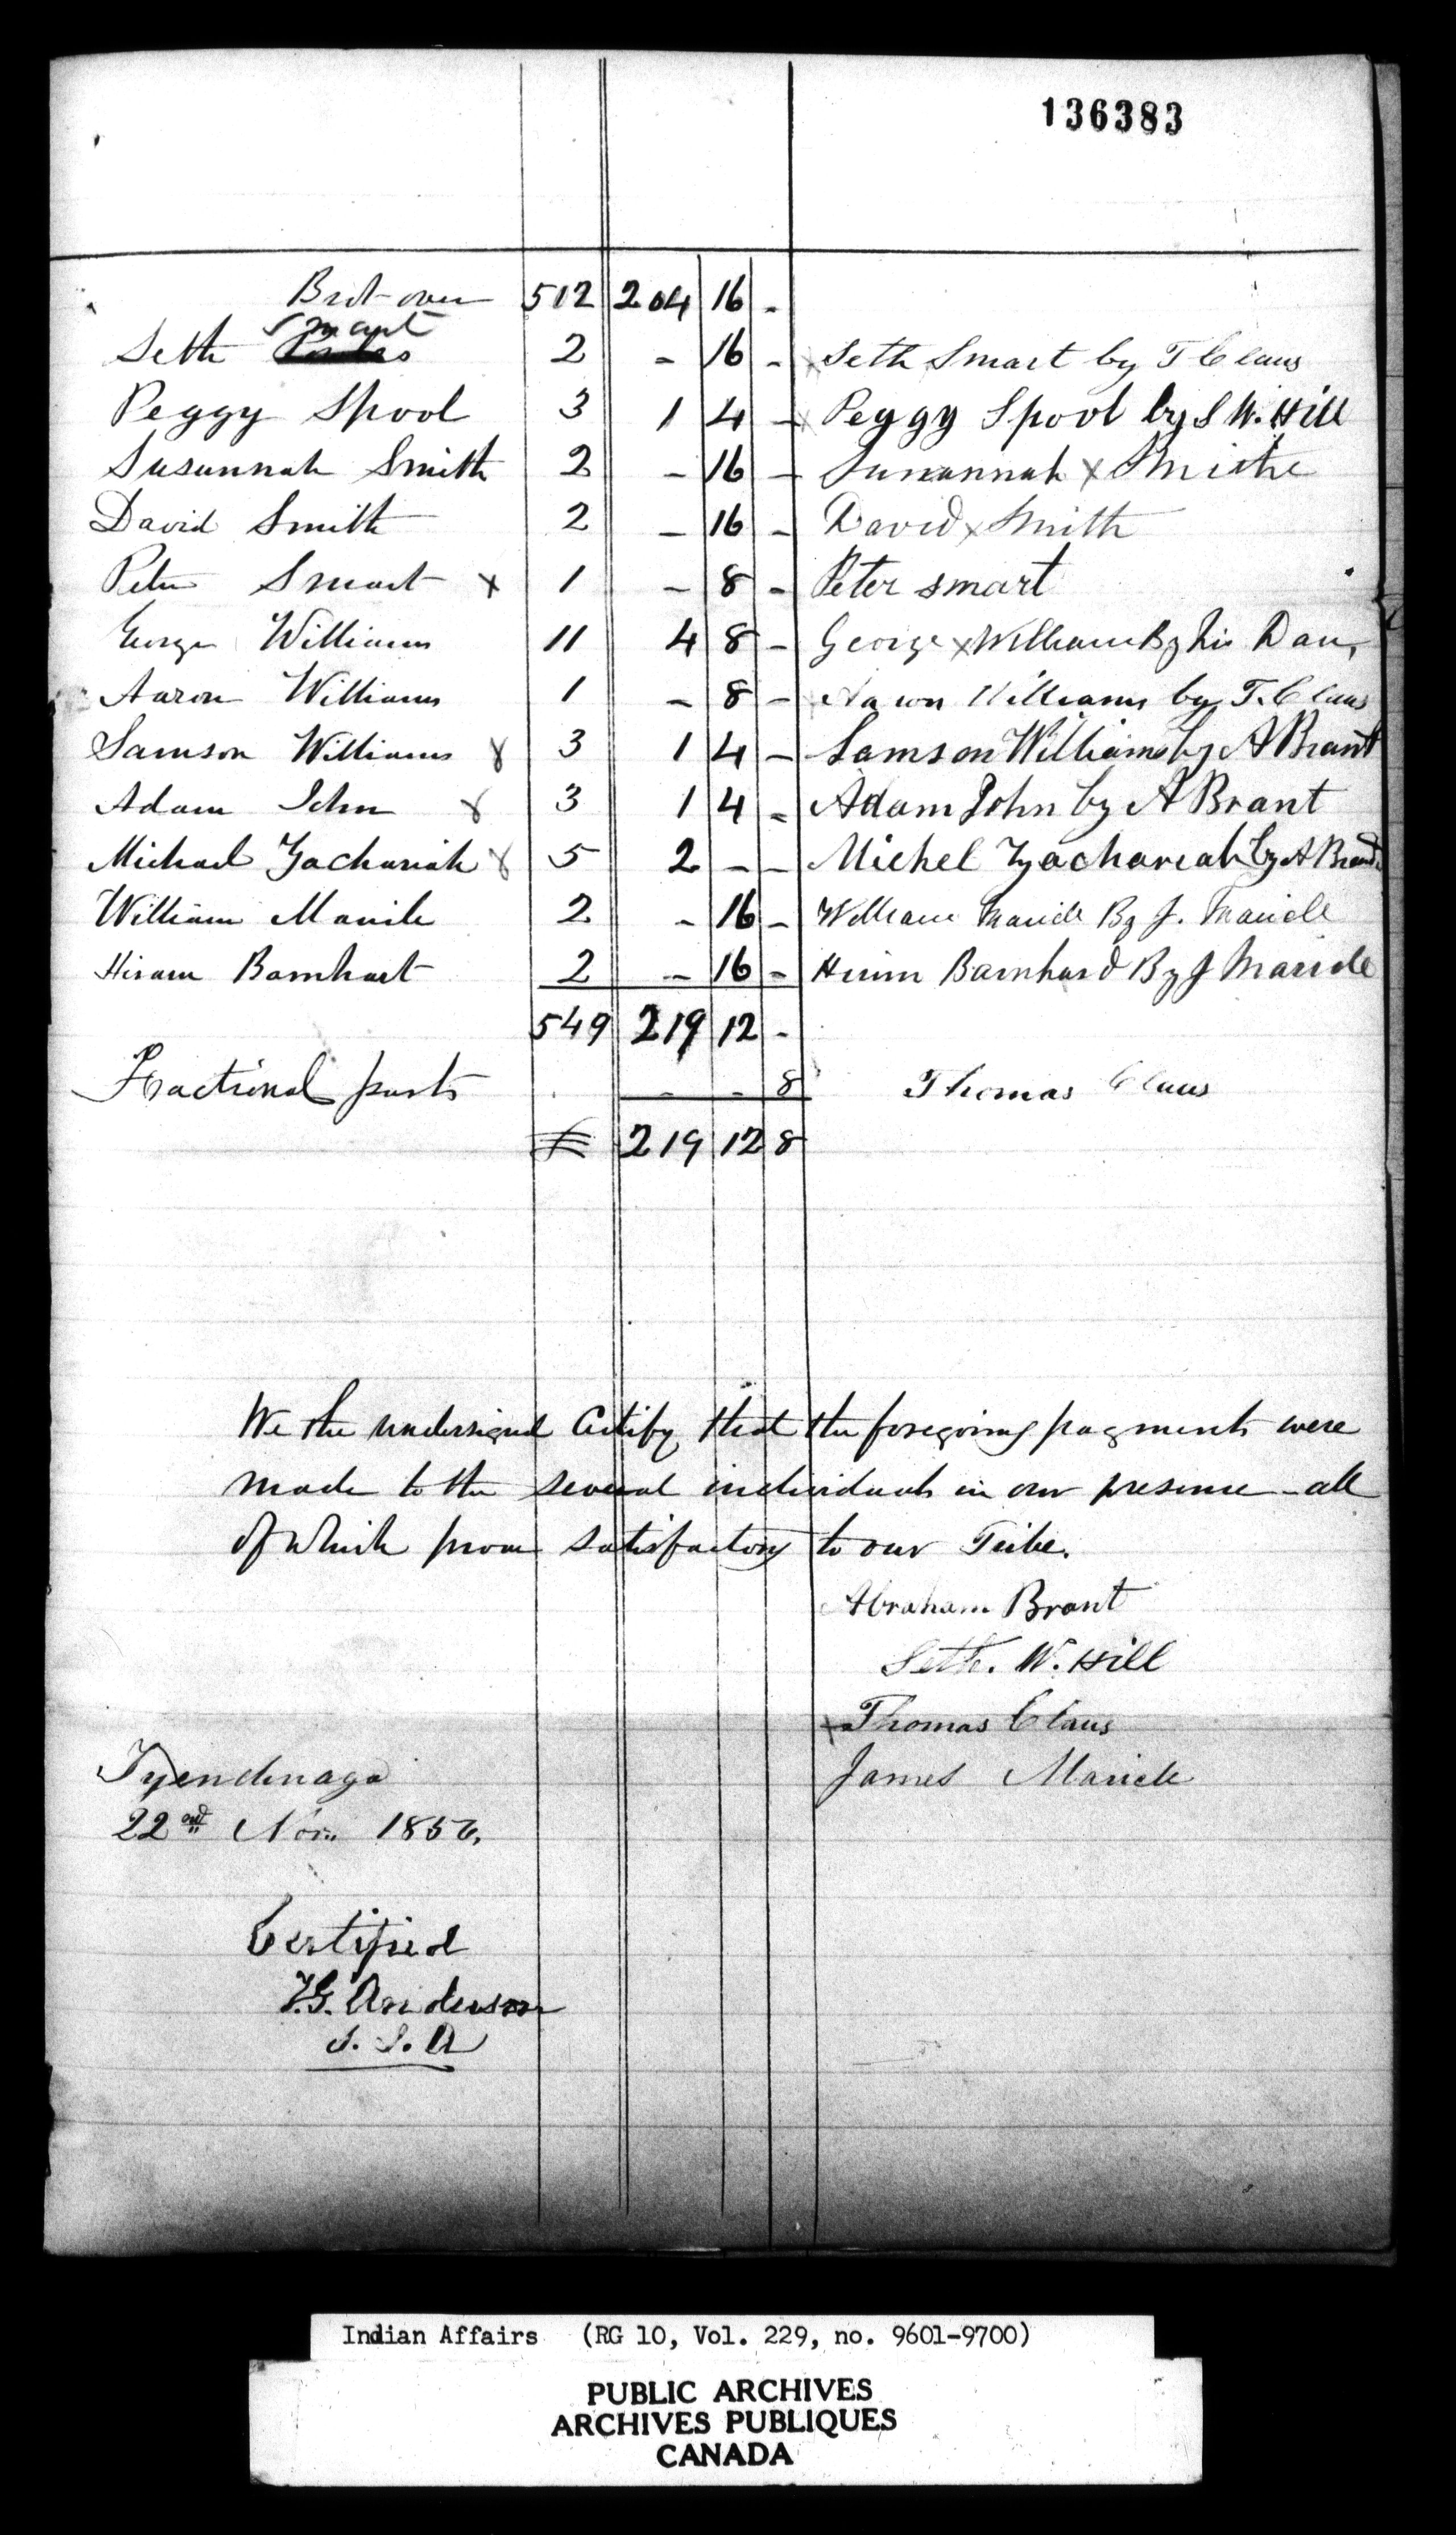 136383
Brot over 512 204 16 -
Seth Smart 2 - 16 - Seth Smart by T Claus
Peggy Spool 3 1 4 - Peggy Spool by S W. Hill
Susannah Smith 2 - 16 - Susannah x Smithe
David Smith 2 - 16 - David x Smith
Peter Smart x 1 - 8 - Peter smart
George Williams 11 4 8 - George x William By his Dau,
Aaron Williams 1 - 8 - Aaron Williams by T. Claus
Samson Williams x 3 1 4 - Samson Williams by A Brant
Adam John x 3 1 4 - Adam John by A Brant
Michael Zachariah x 5 2 - - Michel Zachariah by A Brant
William Maricle 2 - 16 - William Maricle By J. Maricle
Hiram Barnhart 2 - 16 - Hirim Barnhard By J Maricle
549 219 12 -
Fractional parts - - 8 Thomas Claus
£ 219 12 8
We the undersigned Certify that the foregoing payments were
made to the several individuals in our presence - all
of which prove satisfactory to our Tribe.
Abraham Brant
Seth. W. Hill
x Thomas Claus
James Maricle
Tyendinaga
22nd Nov. 1856.
Certified
T.G. Anderson
S. I. A
Indian Affairs (RG 10, Vol. 229, no. 9601-9700)
PUBLIC ARCHIVES
ARCHIVES PUBLIQUES
CANADA